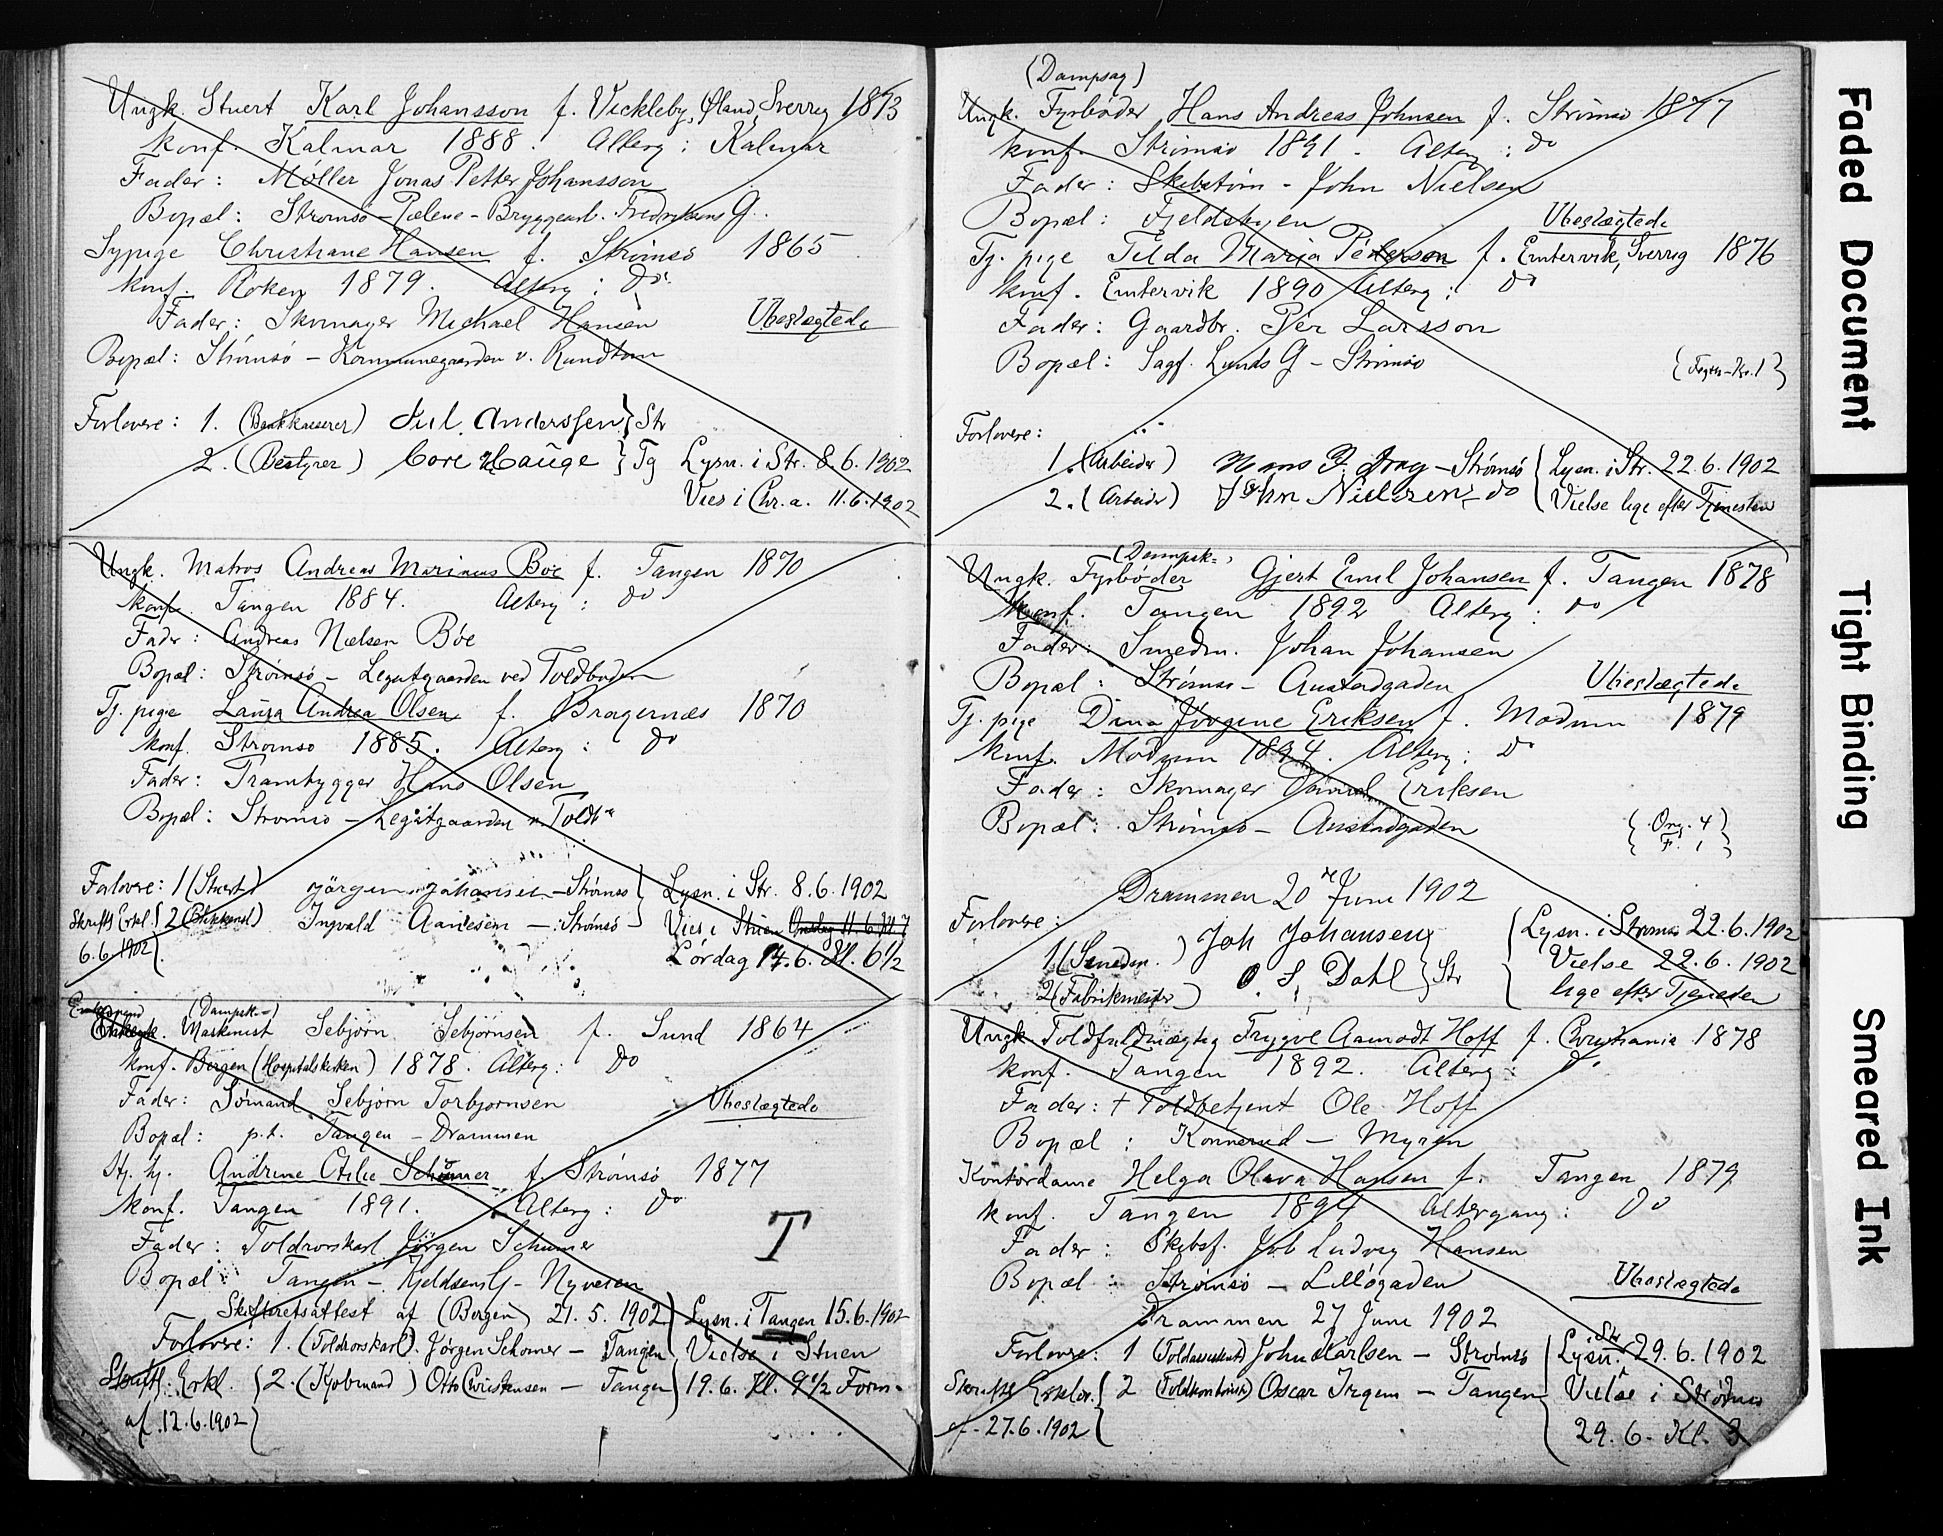 Ungk. Stuert Karl Johansson f. Vickleby, Øland, Sverrig 1873
konf. Kalmar 1888. Alterg: Kalmar
Fader: Møller Jonas Petter Johansson
Bopæl: Strømsø - Pælene - Bryggearb. Fredriksens G.
Sypige Christiane Hansen f. Strømsø 1865
konf. Røken 1879. Alterg: do.
Fader: Skomager Michael Hansen Ubeslægtede
Bopæl: Strømsø - Kommunegaarden v. Rundtom
Forlovere: 1. (Bankkasserer) Jul. Anderssen } Str
2. (Bestyrer) Core Hauge } Tg Lysn. i Str. 8.6.1902
Vies i Chr.a. 11.6.1902
Ungk. Matros Andreas Marinius Böe f. Tangen 1870
konf. Tangen 1884. Alterg: do
Fader: Andreas Nielsen Böe
Bopæl: Strømsø - Legatgaarden ved Toldboden
Tj. pige Laura Andrea Olsen f. Bragernæs 1870
konf. Strømsø 1885. Alterg: do
Fader: Trambygger Hans Olsen
Bopæl: Strømsø - Legatgaarden v. Toldb
Forlovere: 1 (Stuert) Jörgen Johansen - Strømsø } Lysn. i Str. 8.6.1902
Skriftl Erkl. { 2 (Blikkensl) Ingvald - Strømsø Vies i Stuen Onsdag 11.6. Kl. 7
6.6.1902 Lørdag 14.6. Kl. 6 1/2
(Dampsk-)
Enkemand Maskinist Sebjörn Sebjörnsen f. Sund 1864
konf. Bergen (Hospitalskirken) 1878. Alterg: do
Fader: Sömand Sebjörn Torbjørnsen Ubeslægtede
Bopæl: p.t. Tangen - Drammen
Andrine Otilie Schömer f. Strømsø 1877
konf. Tangen 1891. Alterg: do
T
Fader: Toldrorskarl Jörgen Schömer
Bopæl: Tangen - Kjeldsens G - Nyveien
Skifteretsattest af (Bergen) 21.5.1902 } Lysn. i Tangen 15.6.1902
Forlovere: 1. (Toldrorskarl) Jørgen Schömer - Tangen Vielse i Stuen
Skriftl. Erkl. { 2. (Kjøbmand) Otto Christensen - Tangen } 19.6. Kl. 9 1/2 Form.
af. 12.6.1902
(Dampsag)
Ungk. Fyrbøder Hans Andreas Johnsen f. Strømsø 1877
konf. Strømsø 1891. Alterg: do
Fader: Skibstøm - John Nielsen
Bopæl: Fjeldsbyen Ubeslægtede
Tj. pige Tilda Maria Pederson f. Emtervik, Sverrig 1876
konf. Emtervik 1890 Alterg: do
Fader: Gaardbr. Per Larsson
Bopæl: Sagf. Lunds G - Strømsø
Forlovere:
1. (Arbeider) Hans - Strømsø { Lysn. i Str. 22.6.1902
2. (Arbeider) John Nielzen - do { Vielse lige efter Tjenesten
(Dampsk-)
Ungk. Fyrbøder Gjert Emil Johansen f. Tangen 1878
konf. Tangen 1892 Alterg: do
Fader: Smedm. Johan Johansen
Bopæl: Strømsø - Austadgaden Ubeslægtede
Tj. pige Dina Jörgine Eriksen f. Modum 1879
konf. Modum 1894. Alterg: do
Fader: Skomager Eriksen
Bopæl: Strømsø - Austadgaden { Org. 4 }
{ F. 1 }
Drammen 20 de Juni 1902
Forlovere:
1 (Smedm.) Joh Johansen } Lysn. i Strømsø 22.6.1902
2 (Fabrikmester) O. S. Dahl } Str Vielse 22.6.1902
lige efter Tjenesten
Ungk. Toldfuldmægtig Trygve Aamodt Hoff f. Christiania 1878
konf. Tangen 1892. Alterg: do
Fader: † Toldbetjent Ole Hoff
Bopæl: Konnerud - Myren
Kontordame Helga Olava Hansen f. Tangen 1879
konf. Tangen 1894 Altergang: do
Fader: Skibsf. Ludvig Hansen
Bopæl: Strømsø - Lilløgaden Ubeslægtede
Drammen 27 Juni 1902
Forlovere: 1 (Toldassistent) John Karlsen - Strømsø { Lysn. i Str 29.6.1902
Skriftl. Erklær. { 2 (Toldkontrolør) Oscar Irgens - Tangen Vielse i Strømsø
af. 27.6.1902 29.6. Kl. 3
Faded Document
Tight Binding
Smeared Ink